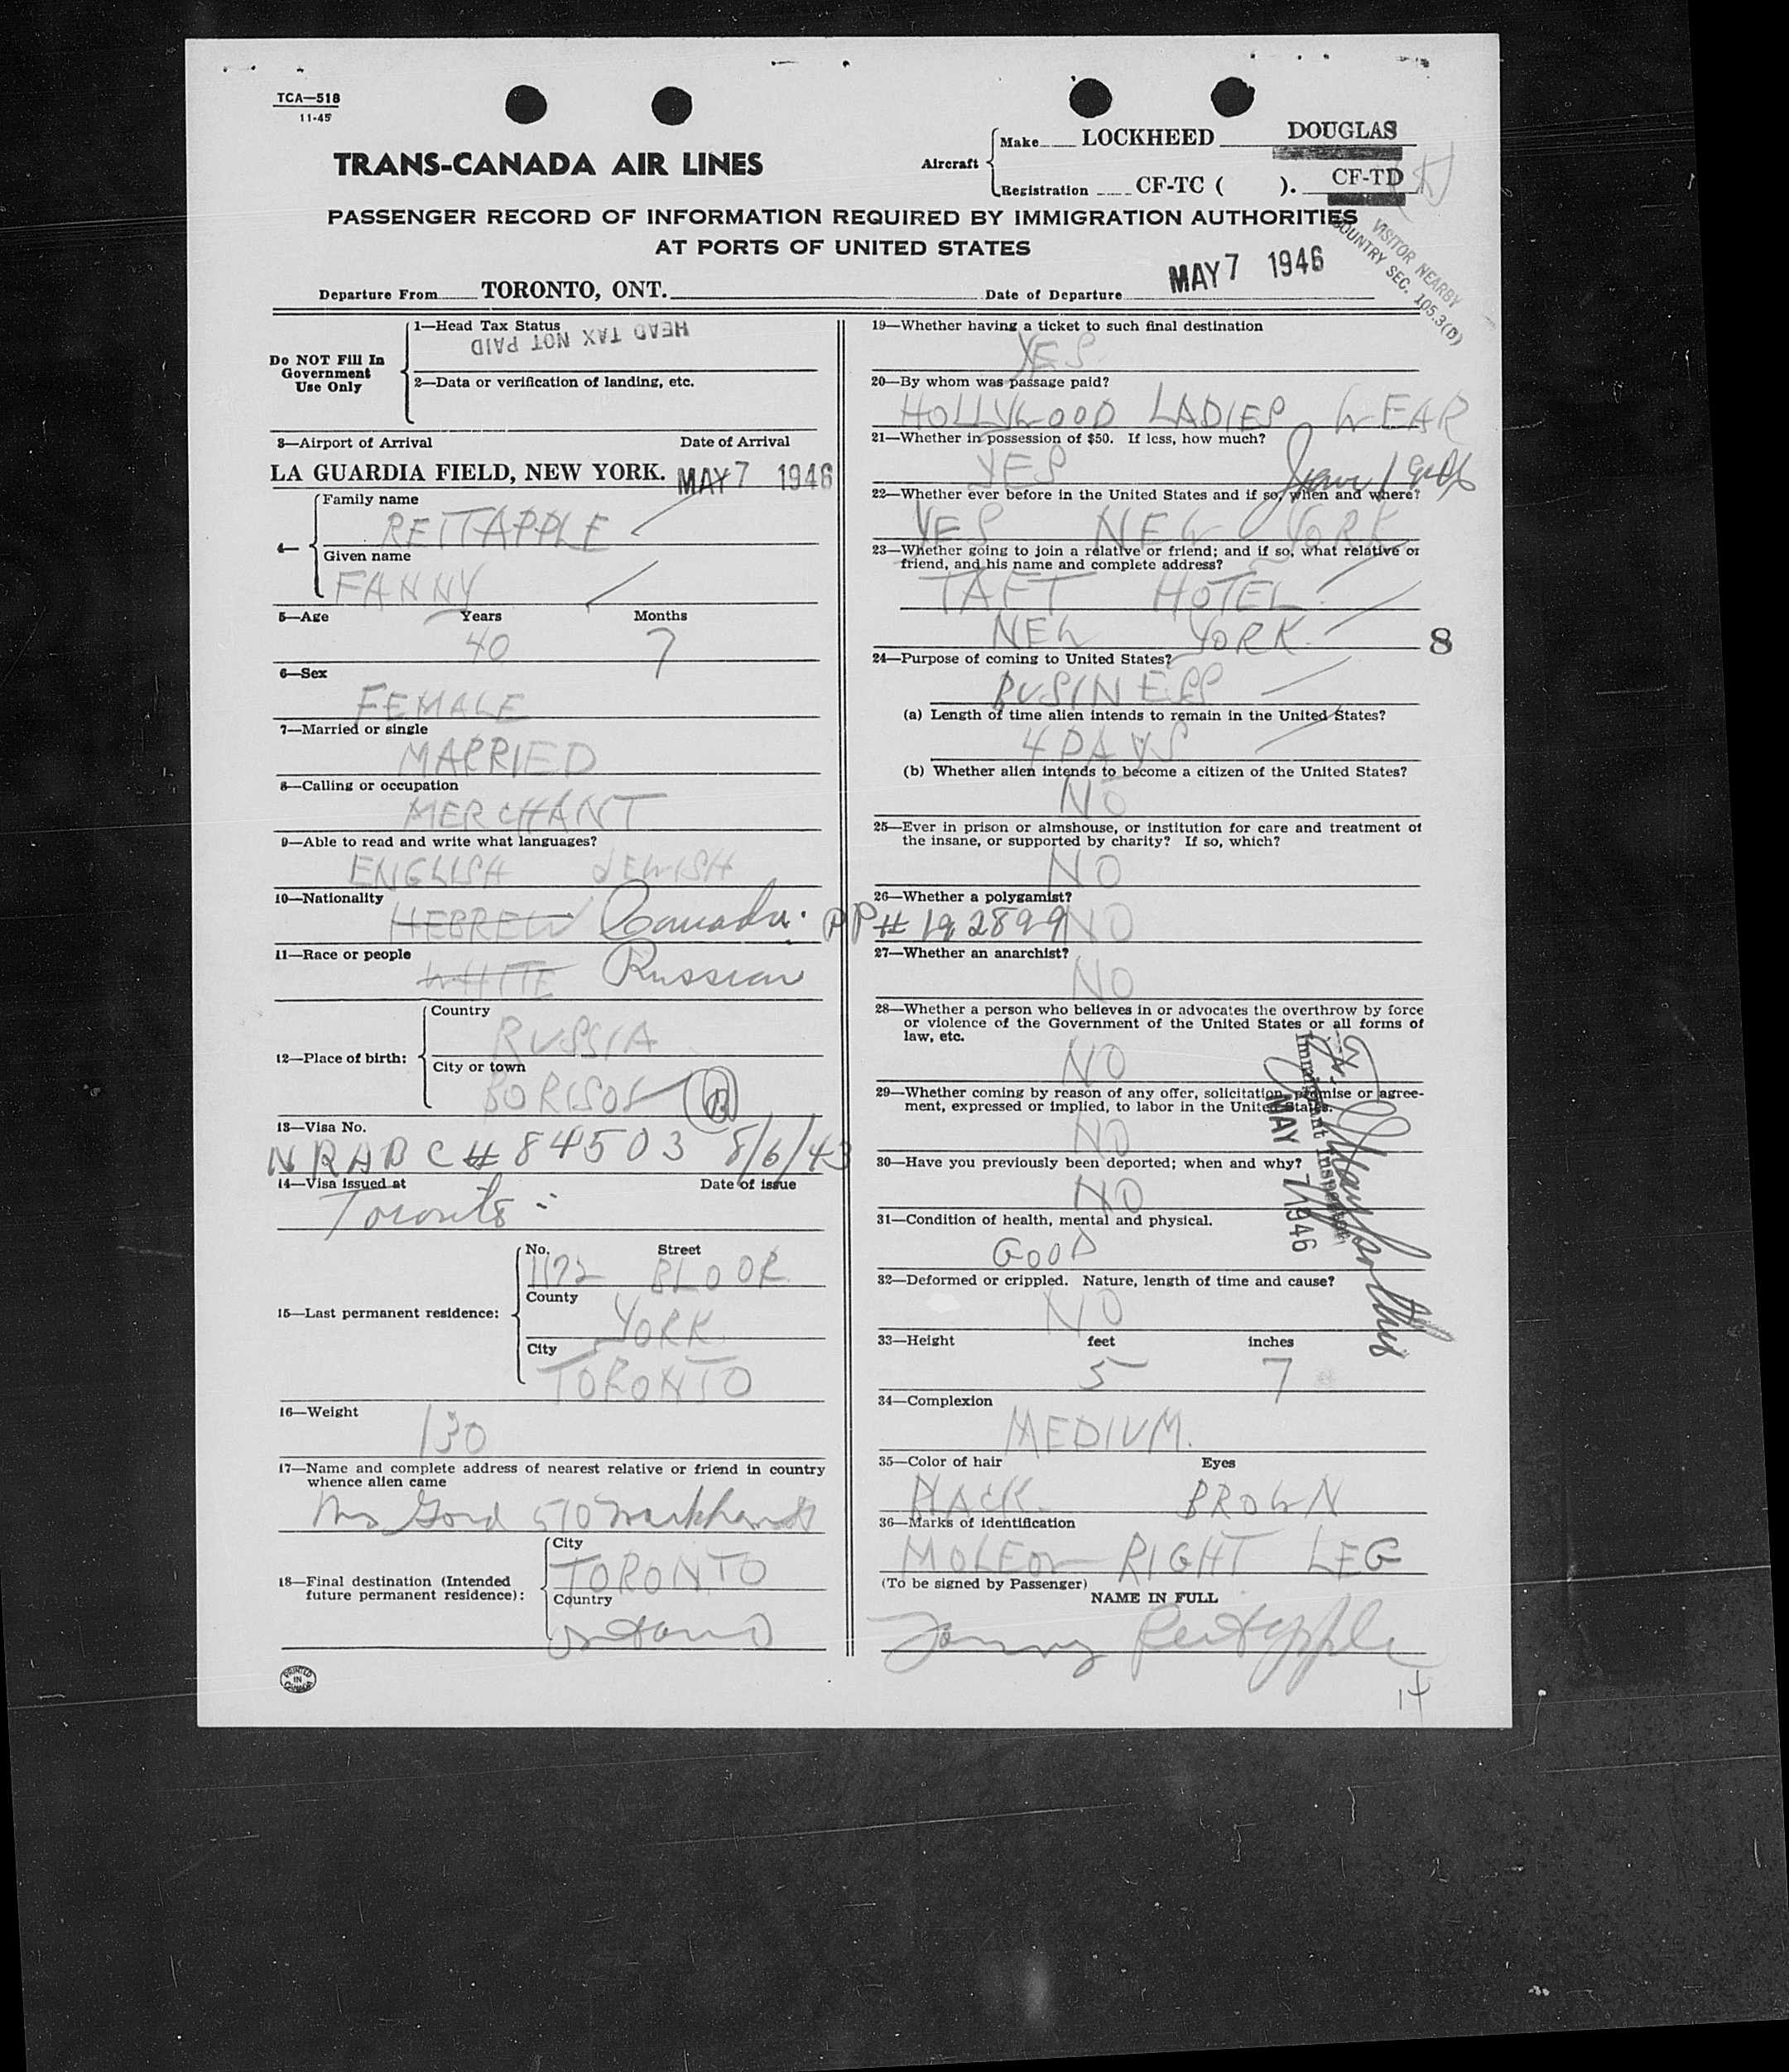 TCA—518
11-45
TRANS-CANADA AIR LINES
Aircraft
Make LOCKHEED DOUGLAS
Registration CF-TC ( ). CF-TD
PASSENGER RECORD OF INFORMATION REQUIRED BY IMMIGRATION AUTHORITIES
AT PORTS OF UNITED STATES
VISITOR NEARBY
COUNTRY SEC. 105.3(B)
Departure From TORONTO, ONT. Date of Departure MAY 7 1946
Do NOT Fill In
Government
Use Only
1—Head Tax Status
HEAD TAX NOT PAID
2—Data or verification of landing, etc.
3—Airport of Arrival Date of Arrival
LA GUARDIA FIELD, NEW YORK. MAY 7 1946
4—
Family name
REITAPPLE
Given name
FANNY
5—Age Years Months
40 7
6—Sex
FEMALE
7—Married or single
MARRIED
8—Calling or occupation
MERCHANT
9—Able to read and write what languages?
ENGLISH JEWISH
10—Nationality
HEBREW Canada. PP# 192899
11—Race or people
WHITE Russian
12—Place of birth:
Country
RUSSIA
City or town
BORISOV B
13—Visa No.
NRABC # 84503 8/6/43
14—Visa issued at Date of issue
Toronto
15—Last permanent residence:
No. Street
1172 BLOOR
County
YORK
City
TORONTO
16—Weight
130
17—Name and complete address of nearest relative or friend in country
whence alien came
Mrs Gord 570 Markham
18—Final destination (Intended
future permanent residence):
City
TORONTO
Country
Ontario
PRINTED
IN
CANADA
19—Whether having a ticket to such final destination
YES
20—By whom was passage paid?
HOLLYWOOD LADIES WEAR
21—Whether in possession of $50. If less, how much?
YES
22—Whether ever before in the United States and if so, when and where?
YES NEW YORK
23—Whether going to join a relative or friend; and if so, what relative or
friend, and his name and complete address?
TAFT HOTEL
NEW YORK. 8
24—Purpose of coming to United States?
BUSINESS
(a) Length of time alien intends to remain in the United States?
4 DAYS
(b) Whether alien intends to become a citizen of the United States?
NO
25—Ever in prison or almshouse, or institution for care and treatment of
the insane, or supported by charity? If so, which?
NO
26—Whether a polygamist?
NO
27—Whether an anarchist?
NO
28—Whether a person who believes in or advocates the overthrow by force
or violence of the Government of the United States or all forms of
law, etc.
NO
29—Whether coming by reason of any offer, solicitation, promise or agree-
ment, expressed or implied, to labor in the United States.
NO
30—Have you previously been deported; when and why?
NO
Immigrant Inspector
MAY 7 1946
31—Condition of health, mental and physical.
GOOD
32—Deformed or crippled. Nature, length of time and cause?
NO
33—Height feet inches
5 7
34—Complexion
MEDIUM.
35—Color of hair Eyes
BLACK BROWN
36—Marks of identification
MOLE on RIGHT LEG
(To be signed by Passenger)
NAME IN FULL
Fanny Reitapple
14